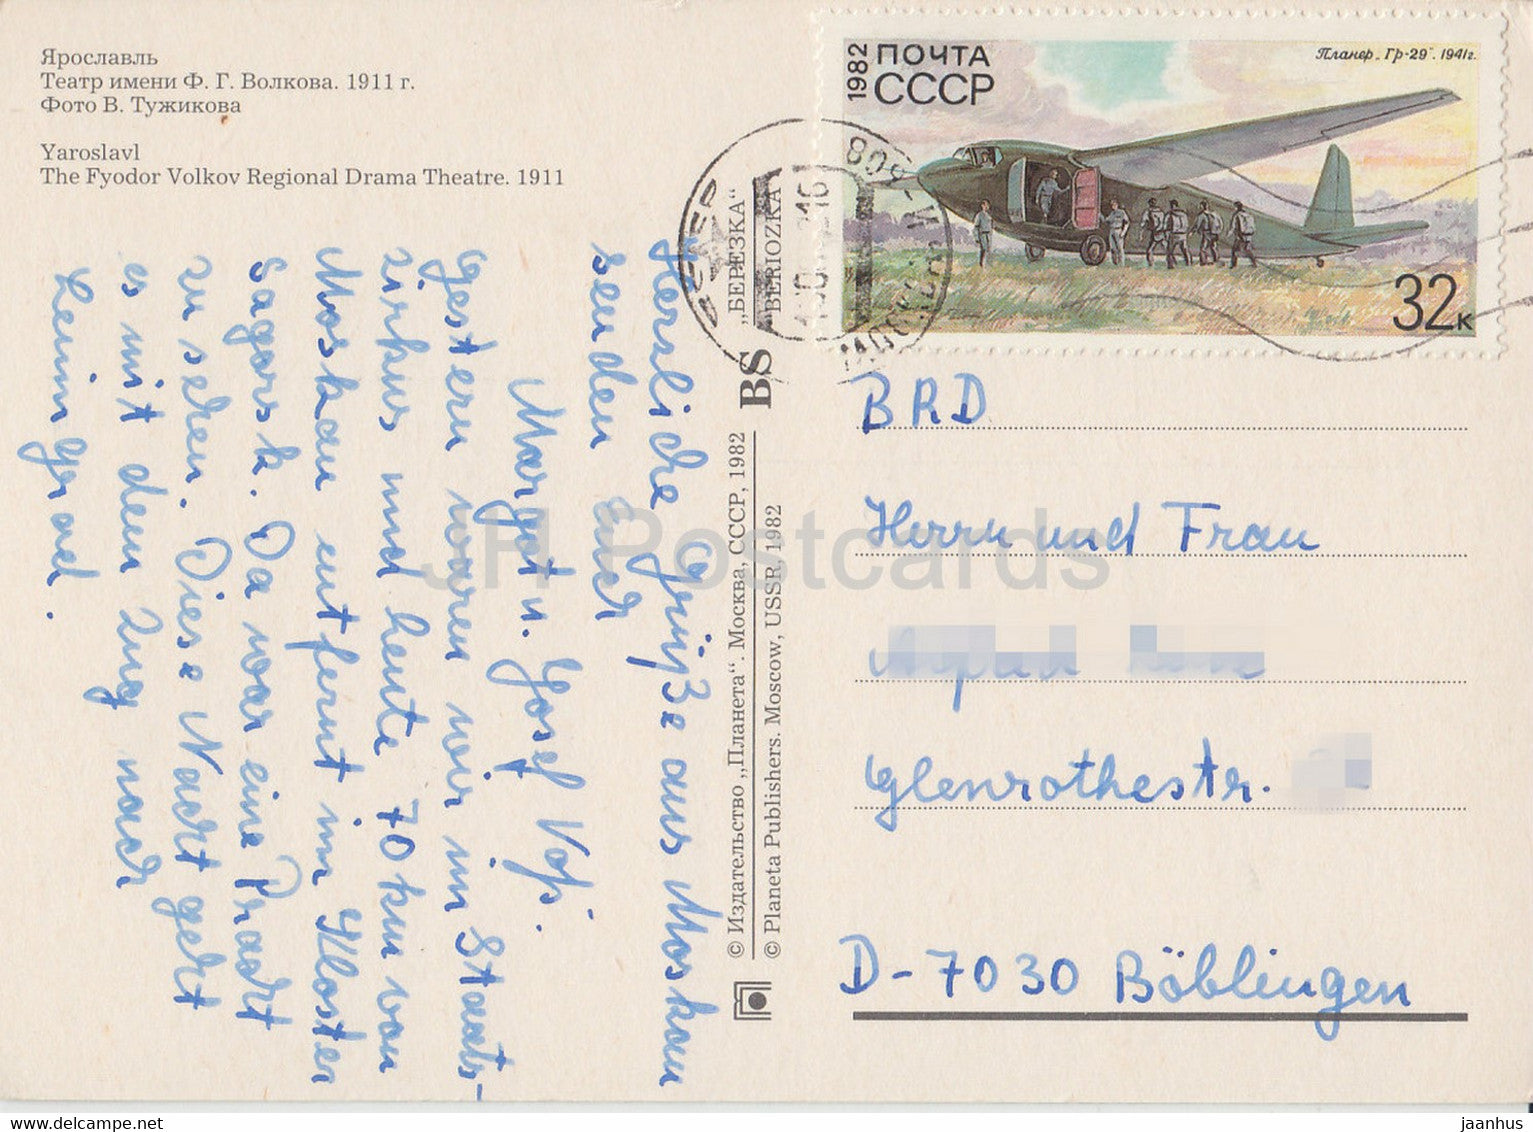 Ярославль
Театр имени Ф. Г. Волкова. 1911 г.
Фото В. Тужикова
Yaroslavl
The Fyodor Volkov Regional Drama Theatre. 1911
Herzliche Grüße aus Moskau
senden euch
Margot u. Josef Voß.
Gestern waren wir im Staats-
zirkus und heute 70 km von
Moskau entfernt im Kloster
Sagorsk. Da war eine Pracht
zu sehen. Diese Nacht geht
es mit dem Zug nach
Leningrad.
„БЕРЕЗКА“
BERIOZKA
BS
© Издательство „Планета“. Москва, СССР, 1982
© Planeta Publishers. Moscow, USSR, 1982
1982
ПОЧТА
СССР
Планер „Гр-29“. 1941г.
32к
МОССКВА
BRD
Herrn und Frau
Glenrothestr.
D-7030 Böblingen
JH Postcards
www.delcampe.net
jaanhus